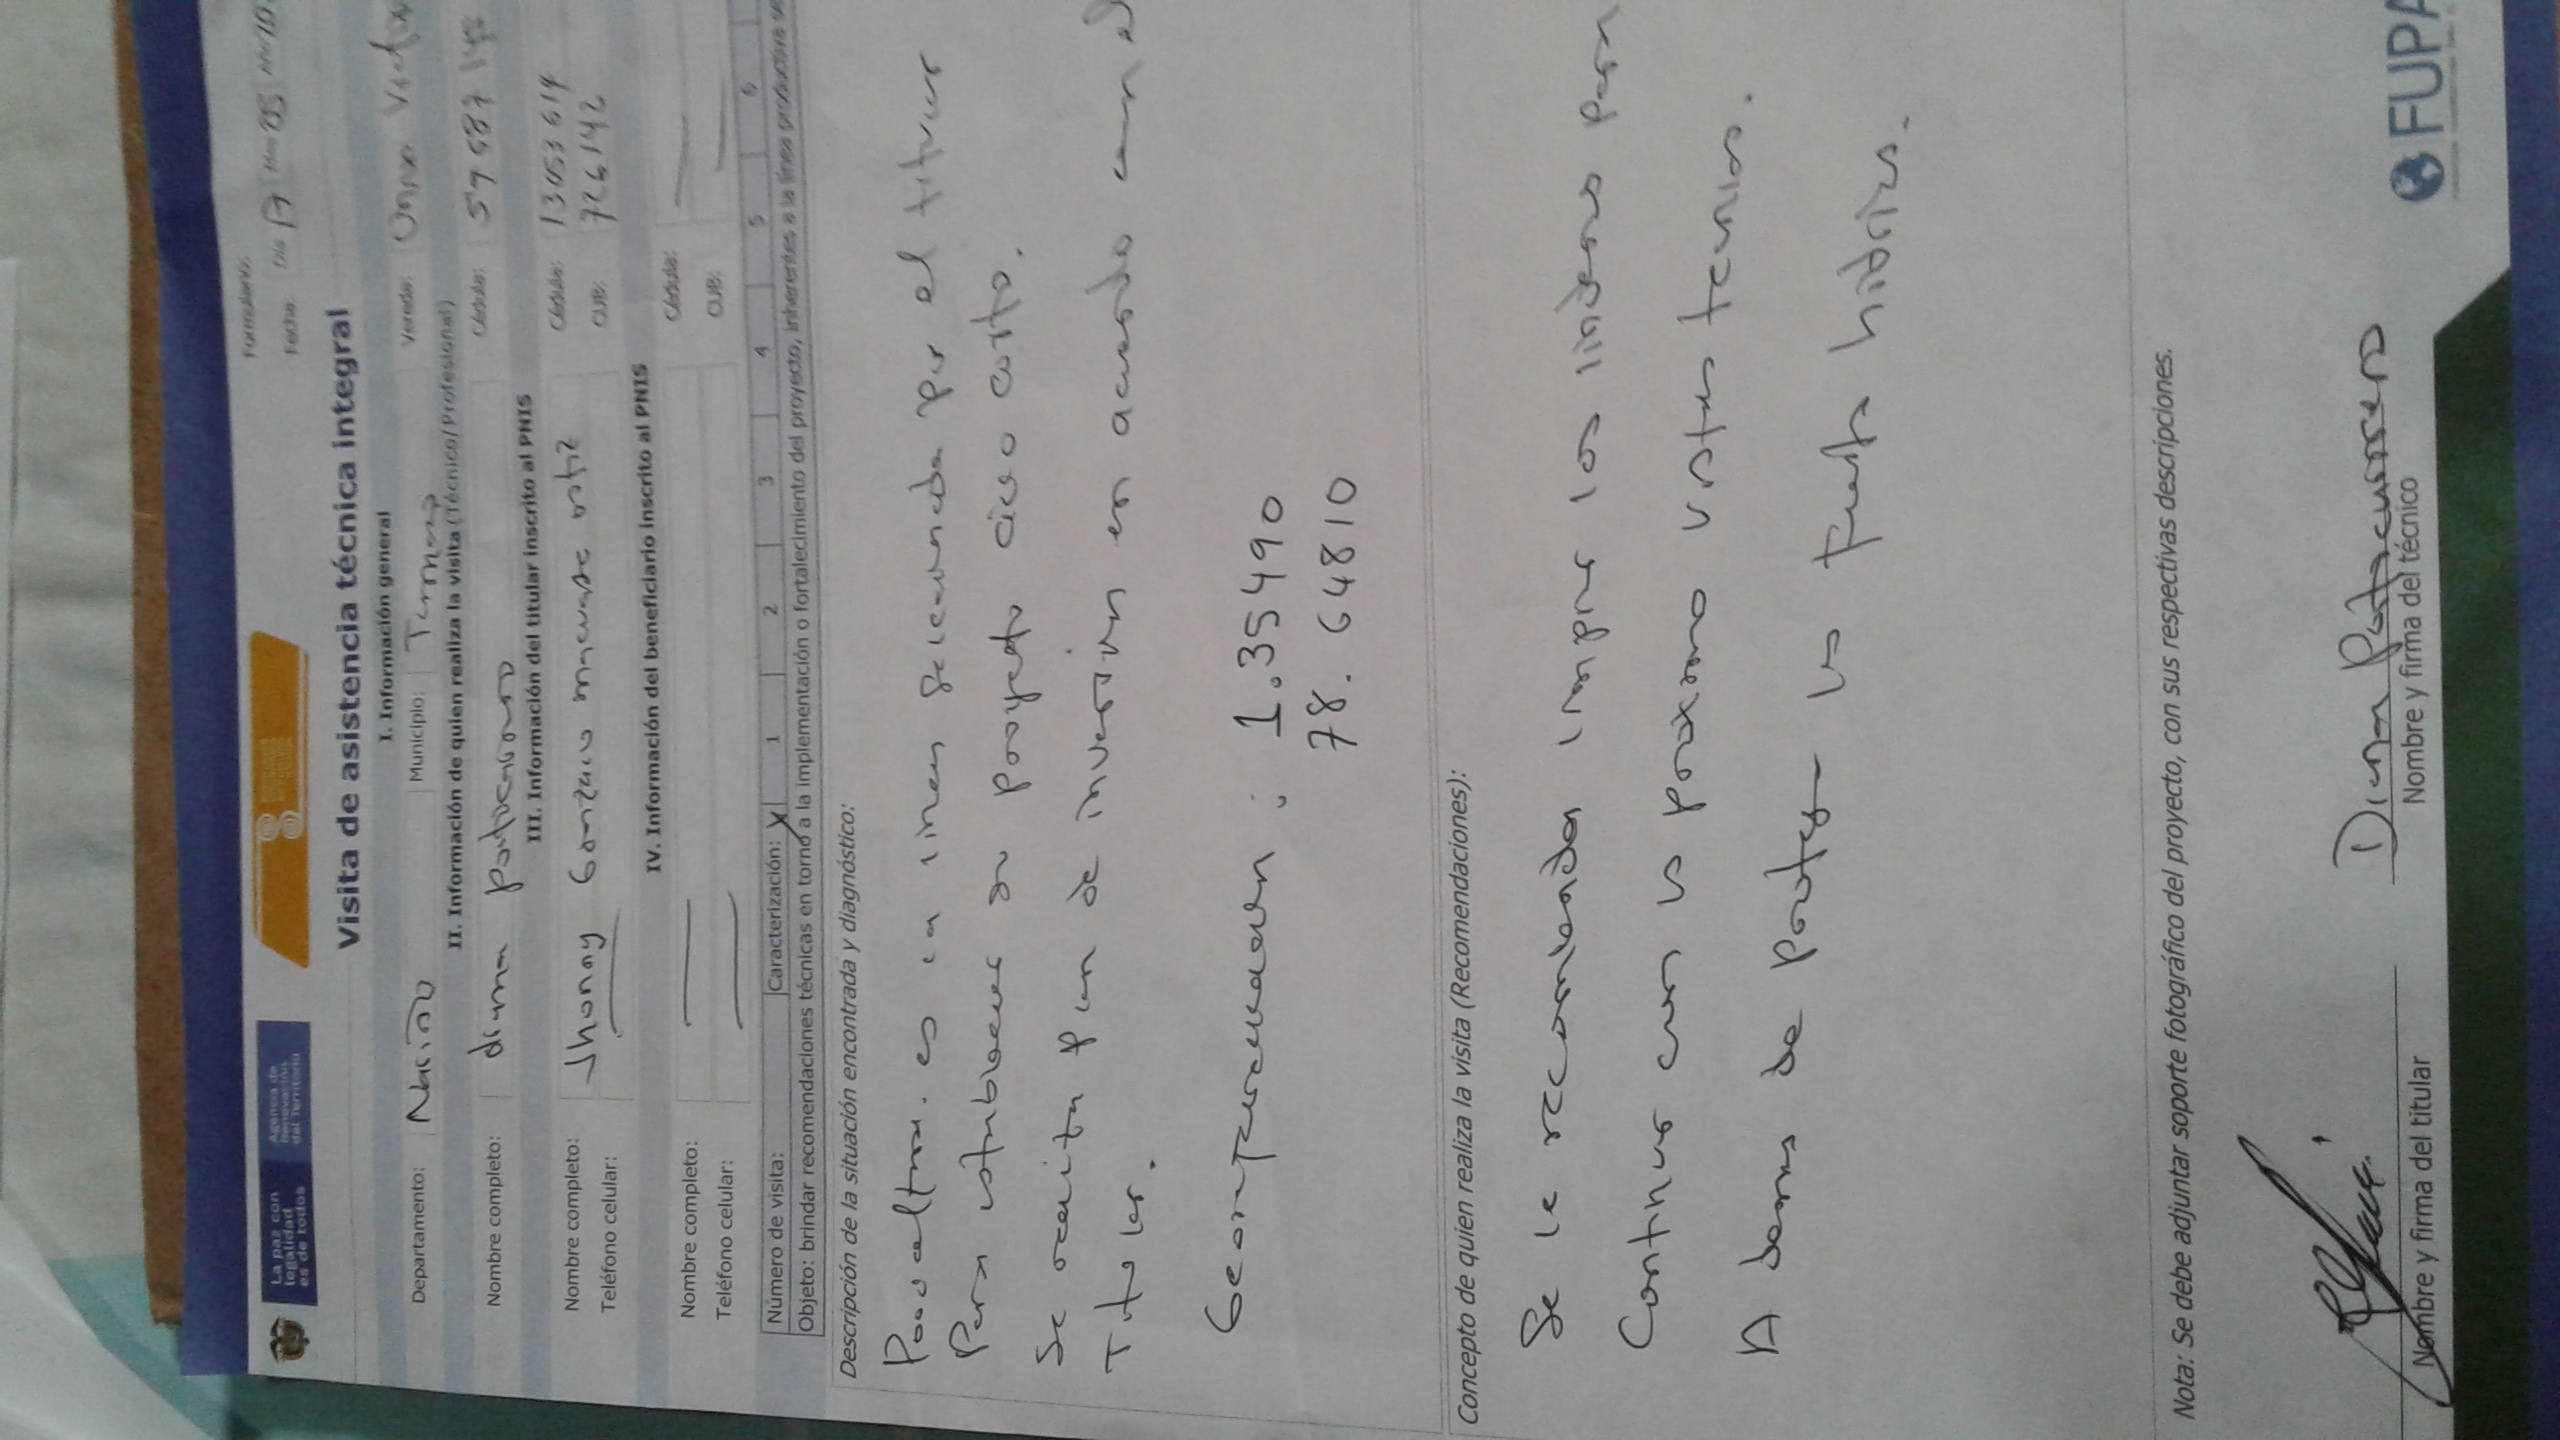 La paz con
legalidad
es de todos
Agencia de
Renovación
del Territorio
Formulario:
Fecha: Día 17 Mes 05
Visita de asistencia técnica integral
I. Información general
Departamento: Nariño Municipio: Vereda:
II. Información de quien realiza la visita (Técnico/Profesional)
Nombre completo: diana Portocarrero Cédula:
III. Información del titular inscrito al PNIS
Nombre completo: Jhonny Gonzalo ortiz Cédula: 13053614
Teléfono celular: CUB: 726142
IV. Información del beneficiario inscrito al PNIS
Nombre completo: Cédula:
Teléfono celular: CUB:
Número de visita: Caracterización: X 1 2 3 4 5 6
Objeto: brindar recomendaciones técnicas en torno a la implementación o fortalecimiento del proyecto, inherentes a la línea productiva
Descripción de la situación encontrada y diagnóstico:
es la linea seleccionada por el titular
Para establecer su proyecto ciclo corto.
Se plan de inversion en acuerdo con el
Titular.
: 1.35490
78.64810
Concepto de quien realiza la visita (Recomendaciones):
Se le recomienda limpiar los linderos para
Continuar con las proximas visitas
A demas de proteger la fuente hidrica.
Nota: Se debe adjuntar soporte fotográfico del proyecto, con sus respectivas descripciones.
Diana Portocarrero
Nombre y firma del titular Nombre y firma del técnico
FUPA